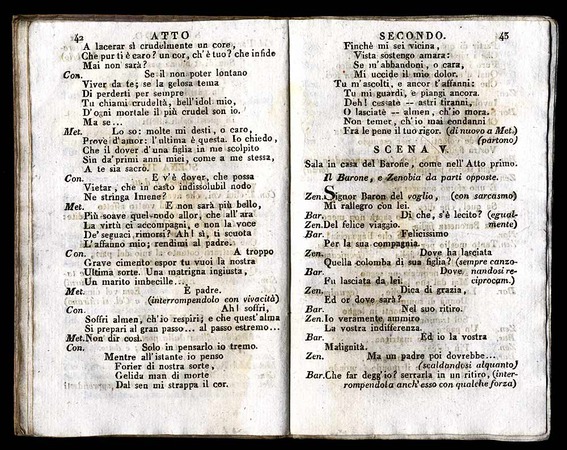 42 ATTO
A lacerar sì crudelmente un core,
Che pur ti è caro? un cor, ch'è tuo? che infido
Mai non sarà?
Con. Se il non poter lontano
Viver da te; se la gelosa tema
Di perderti per sempre
Tu chiami crudeltà, bell'idol mio,
D'ogni mortale il più crudel son io.
Ma se...
Met. Lo so: molte mi desti, o caro,
Prove d'amor: l'ultima è questa. Io chiedo,
Che il dover d'una figlia in me scolpito
Sin da' primi anni miei, come a me stessa,
A te sia sacro.
Con. E v'è dover, che possa
Vietar, che in casto indissolubil nodo
Ne stringa Imene?
Met. E non sarà più bello,
Più soave quel nodo allor, che all'ara
La virtù ci accompagni, e non la voce
De' seguaci rimorsi? Ah! sì, ti scuota
L'affanno mio; rendimi al padre.
Con. A troppo
Grave cimento espor tu vuoi la nostra
Ultima sorte. Una matrigna ingiusta,
Un marito imbecille...
Met. È padre.
(interrompendolo con vivacità)
Con. Ah! soffri,
Soffri almen, ch'io respiri; e che quest'alma
Si prepari al gran passo... al passo estremo...
Met. Non dir così.
Con. Solo in pensarlo io tremo.
Mentre all'istante io penso
Forier di nostra sorte,
Gelida man di morte
Dal sen mi strappa il cor.
SECONDO. 43
Finchè mi sei vicina,
Vista sostengo amara:
Se m'abbandoni, o cara,
Mi uccide il mio dolor.
Tu m'ascolti, e ancor t'affanni:
Tu mi guardi, e piangi ancora.
Deh! cessate -- astri tiranni,
O lasciate -- almen, ch'io mora.
Non temer, ch'io mai condanni
Fra le pene il tuo rigor. (di nuovo a Met.)
(partono)
SCENA V.
Sala in casa del Barone, come nell'Atto primo.
Il Barone, e Zenobia da parti opposte.
Zen. Signor Baron del voglio, (con sarcasmo)
Mi rallegro con lei.
Bar. Di che, s'è lecito? (egual-
Zen. Del felice viaggio. mente)
Bar. Felicissimo
Per la sua compagnia.
Zen. Dove ha lasciata
Quella colomba di sua figlia? (sempre canzo-
Bar. Dove nandosi re-
Fu lasciata da lei. ciprocam.)
Zen. Dica di grazia,
Ed or dove sarà?
Bar. Nel suo ritiro.
Zen. Io veramente ammiro
La vostra indifferenza.
Bar. Ed io la vostra
Malignità.
Zen. Ma un padre poi dovrebbe...
(scaldandosi alquanto)
Bar. Che far degg'io? serrarla in un ritiro, (inter-
rompendola anch'esso con qualche forza)